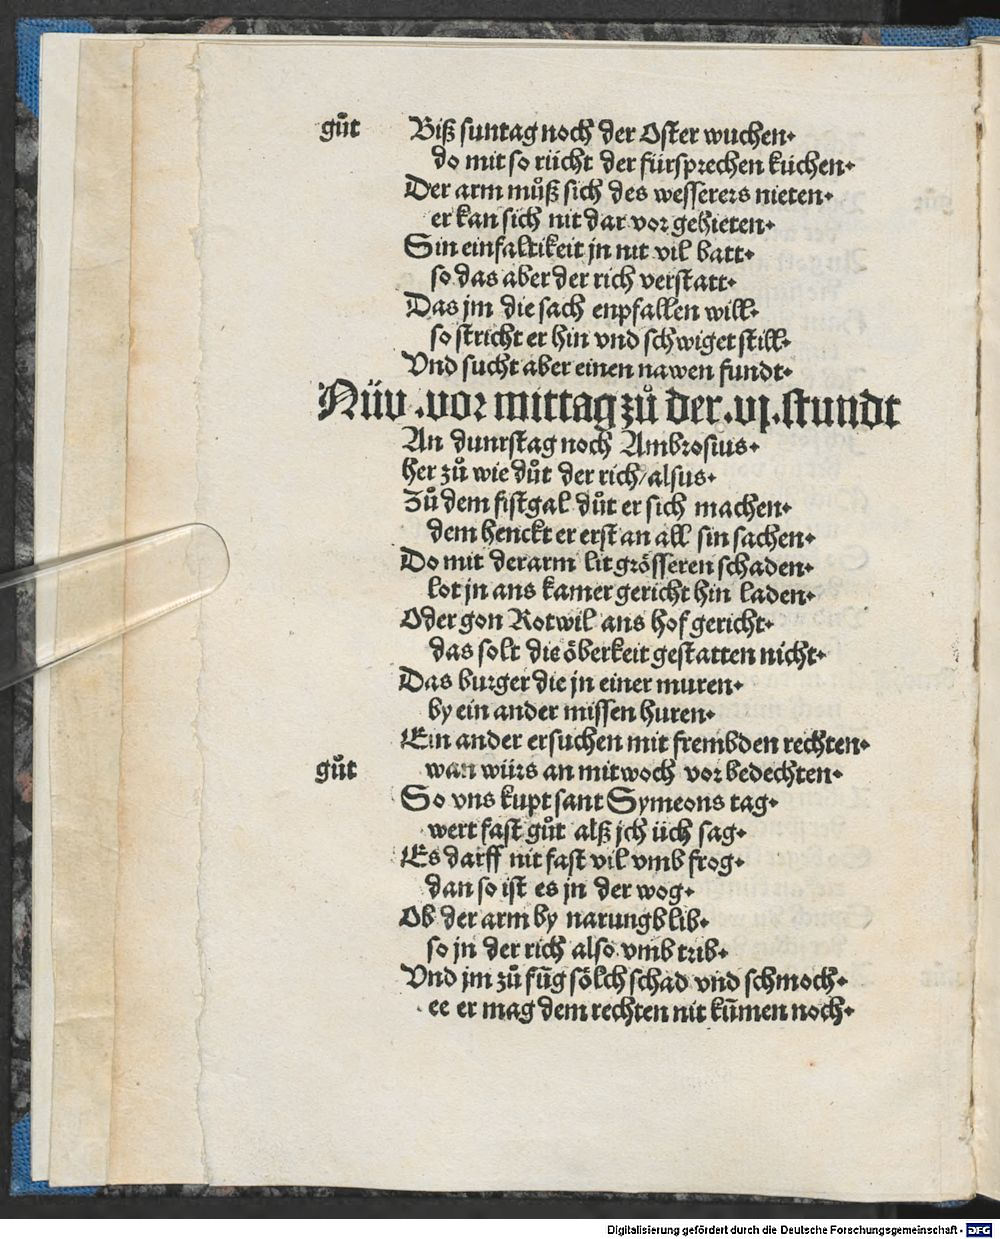 gůt Biß suntag noch der Oster wuchen.
do mit so rücht der fürsprechen kuchen.
Der arm můß sich des wesserers nieten.
er kan sich nit dar vor gehieten.
Sin einfaltikeit jn nit vil batt.
so das aber der rich verstatt.
Das jm die sach enpfallen will.
so stricht er hin vnd schwiget still.
Vnd sucht aber einen nawen fundt.
Nüv .vor mittag zů der .vj. stundt
An dunrstag noch Ambrosius.
her zů wie důt der rich/alsus.
Zů dem fistgal důt er sich machen.
dem henckt er erst an all sin sachen.
Do mit der arm lit grösseren schaden.
lot jn ans kamer gericht hin laden.
Oder gon Rotwil ans hof gericht.
das solt die öberkeit gestatten nicht.
Das burger die jn einer muren.
by ein ander missen huren.
Ein ander ersuchen mit frembden rechten.
gůt wan würs an mitwoch vor bedechten.
So vns kupt sant Symeons tag.
wert fast gůt alß jch üch sag.
Es darff nit fast vil vmb frog.
dan so ist es jn der wog.
Ob der arm by narung blib.
so jn der rich also vmb trib.
Vnd jm zů füg sölch schad vnd schmoch.
ee er mag dem rechten nit kūmen noch.
Digitalisierung gefördert durch die Deutsche Forschungsgemeinschaft - DFG